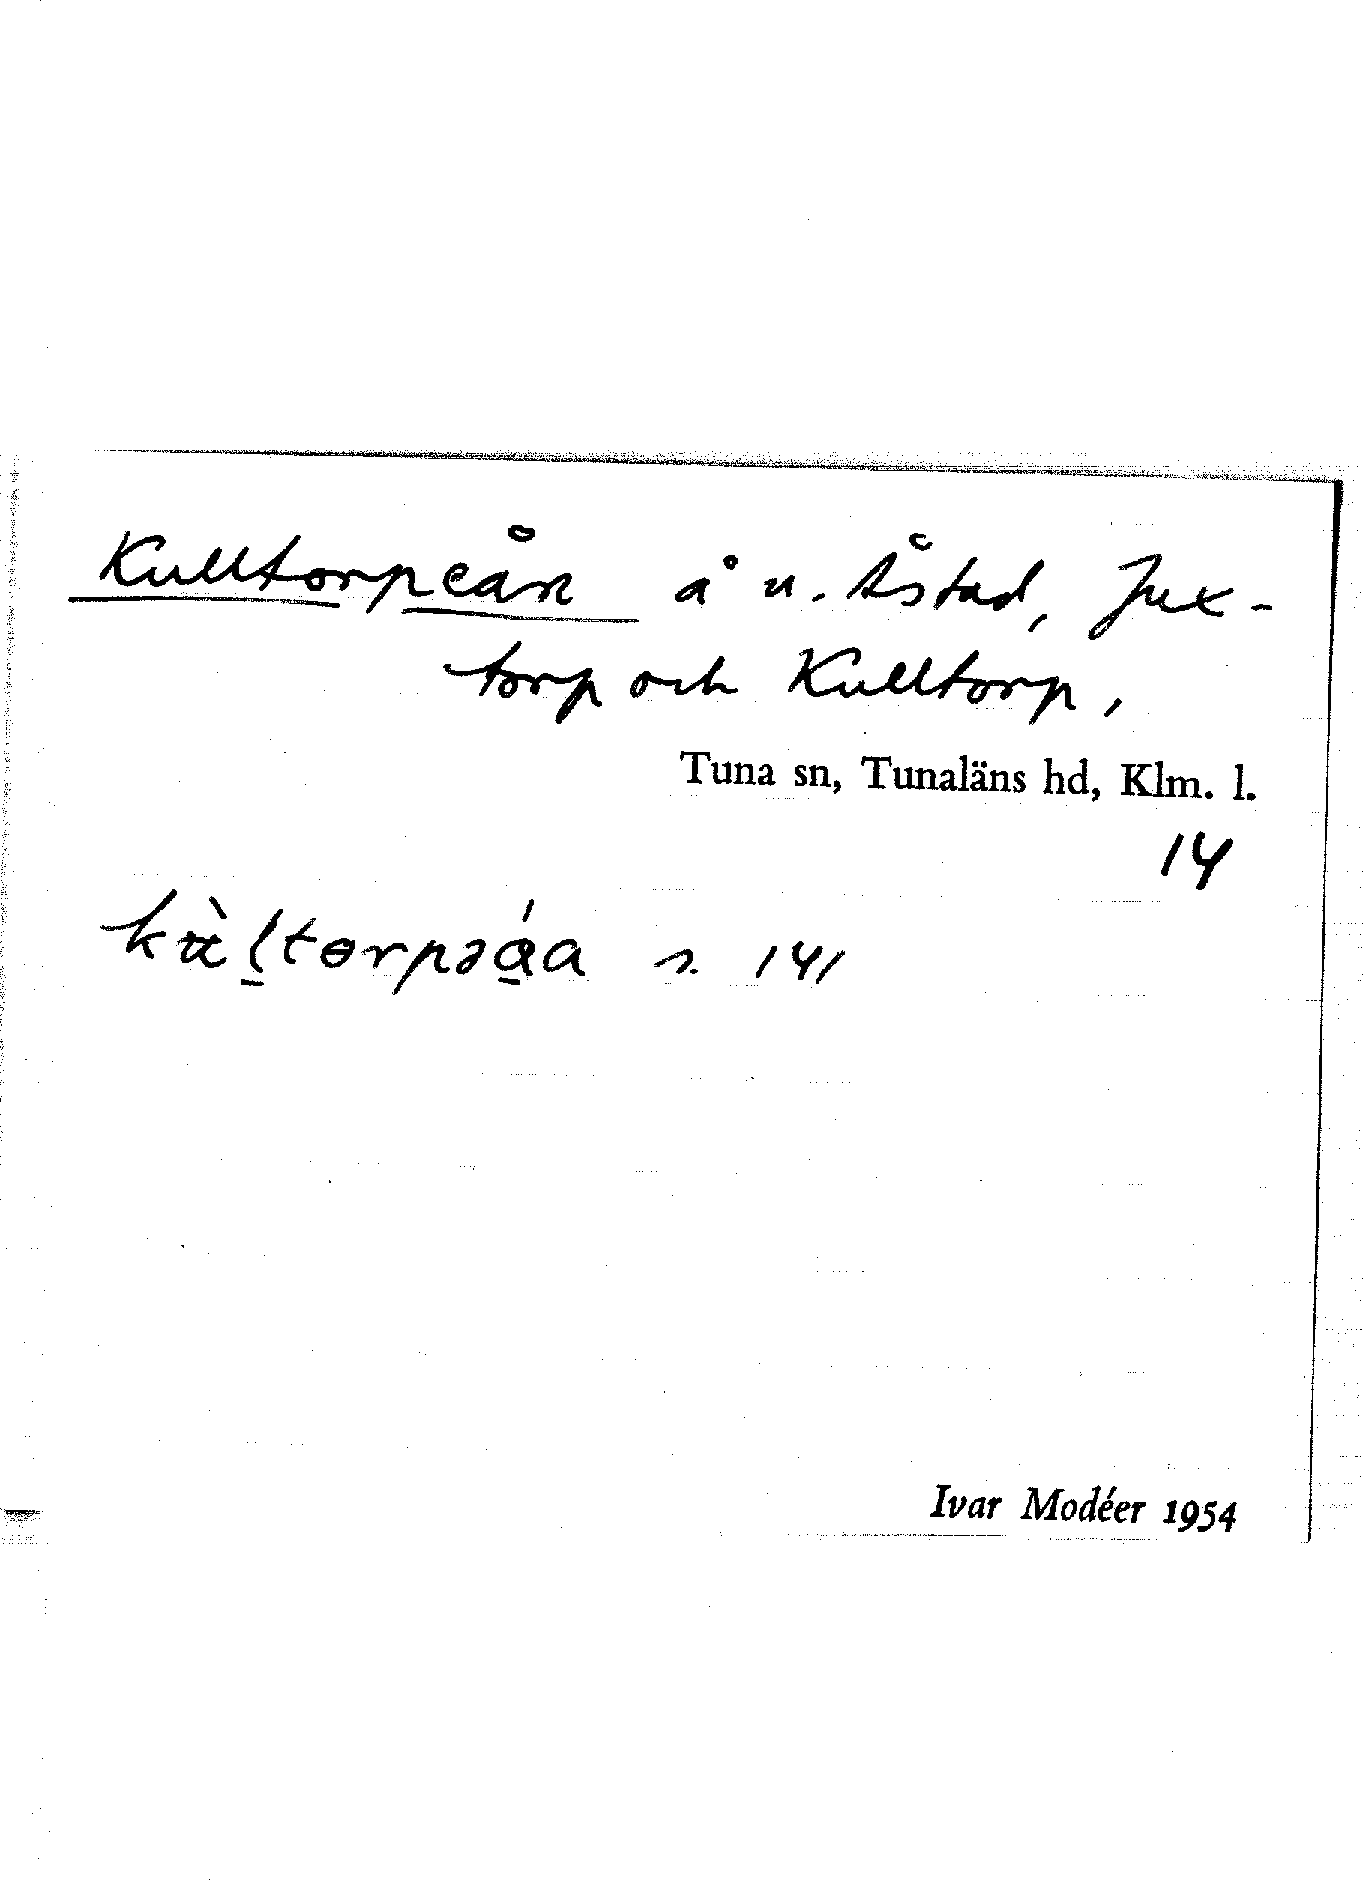 Kulltorpeån å u. Åstad, Jux-
torp och Kulltorp,
Tuna sn, Tunaläns hd, Klm. l.
14
s. 141
Ivar Modéer 1954